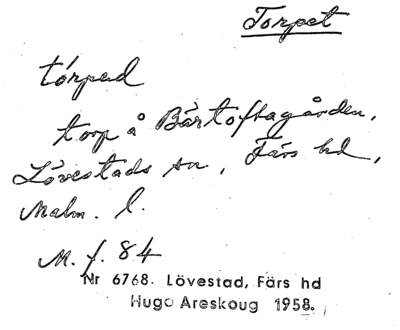 Torpet
tórpad
torp å Bärtoftagården,
Lövestads sn, Färs hd,
Malm. l.
M. f. 84
Nr 6768. Lövestad, Färs hd
Hugo Areskoug 1958.